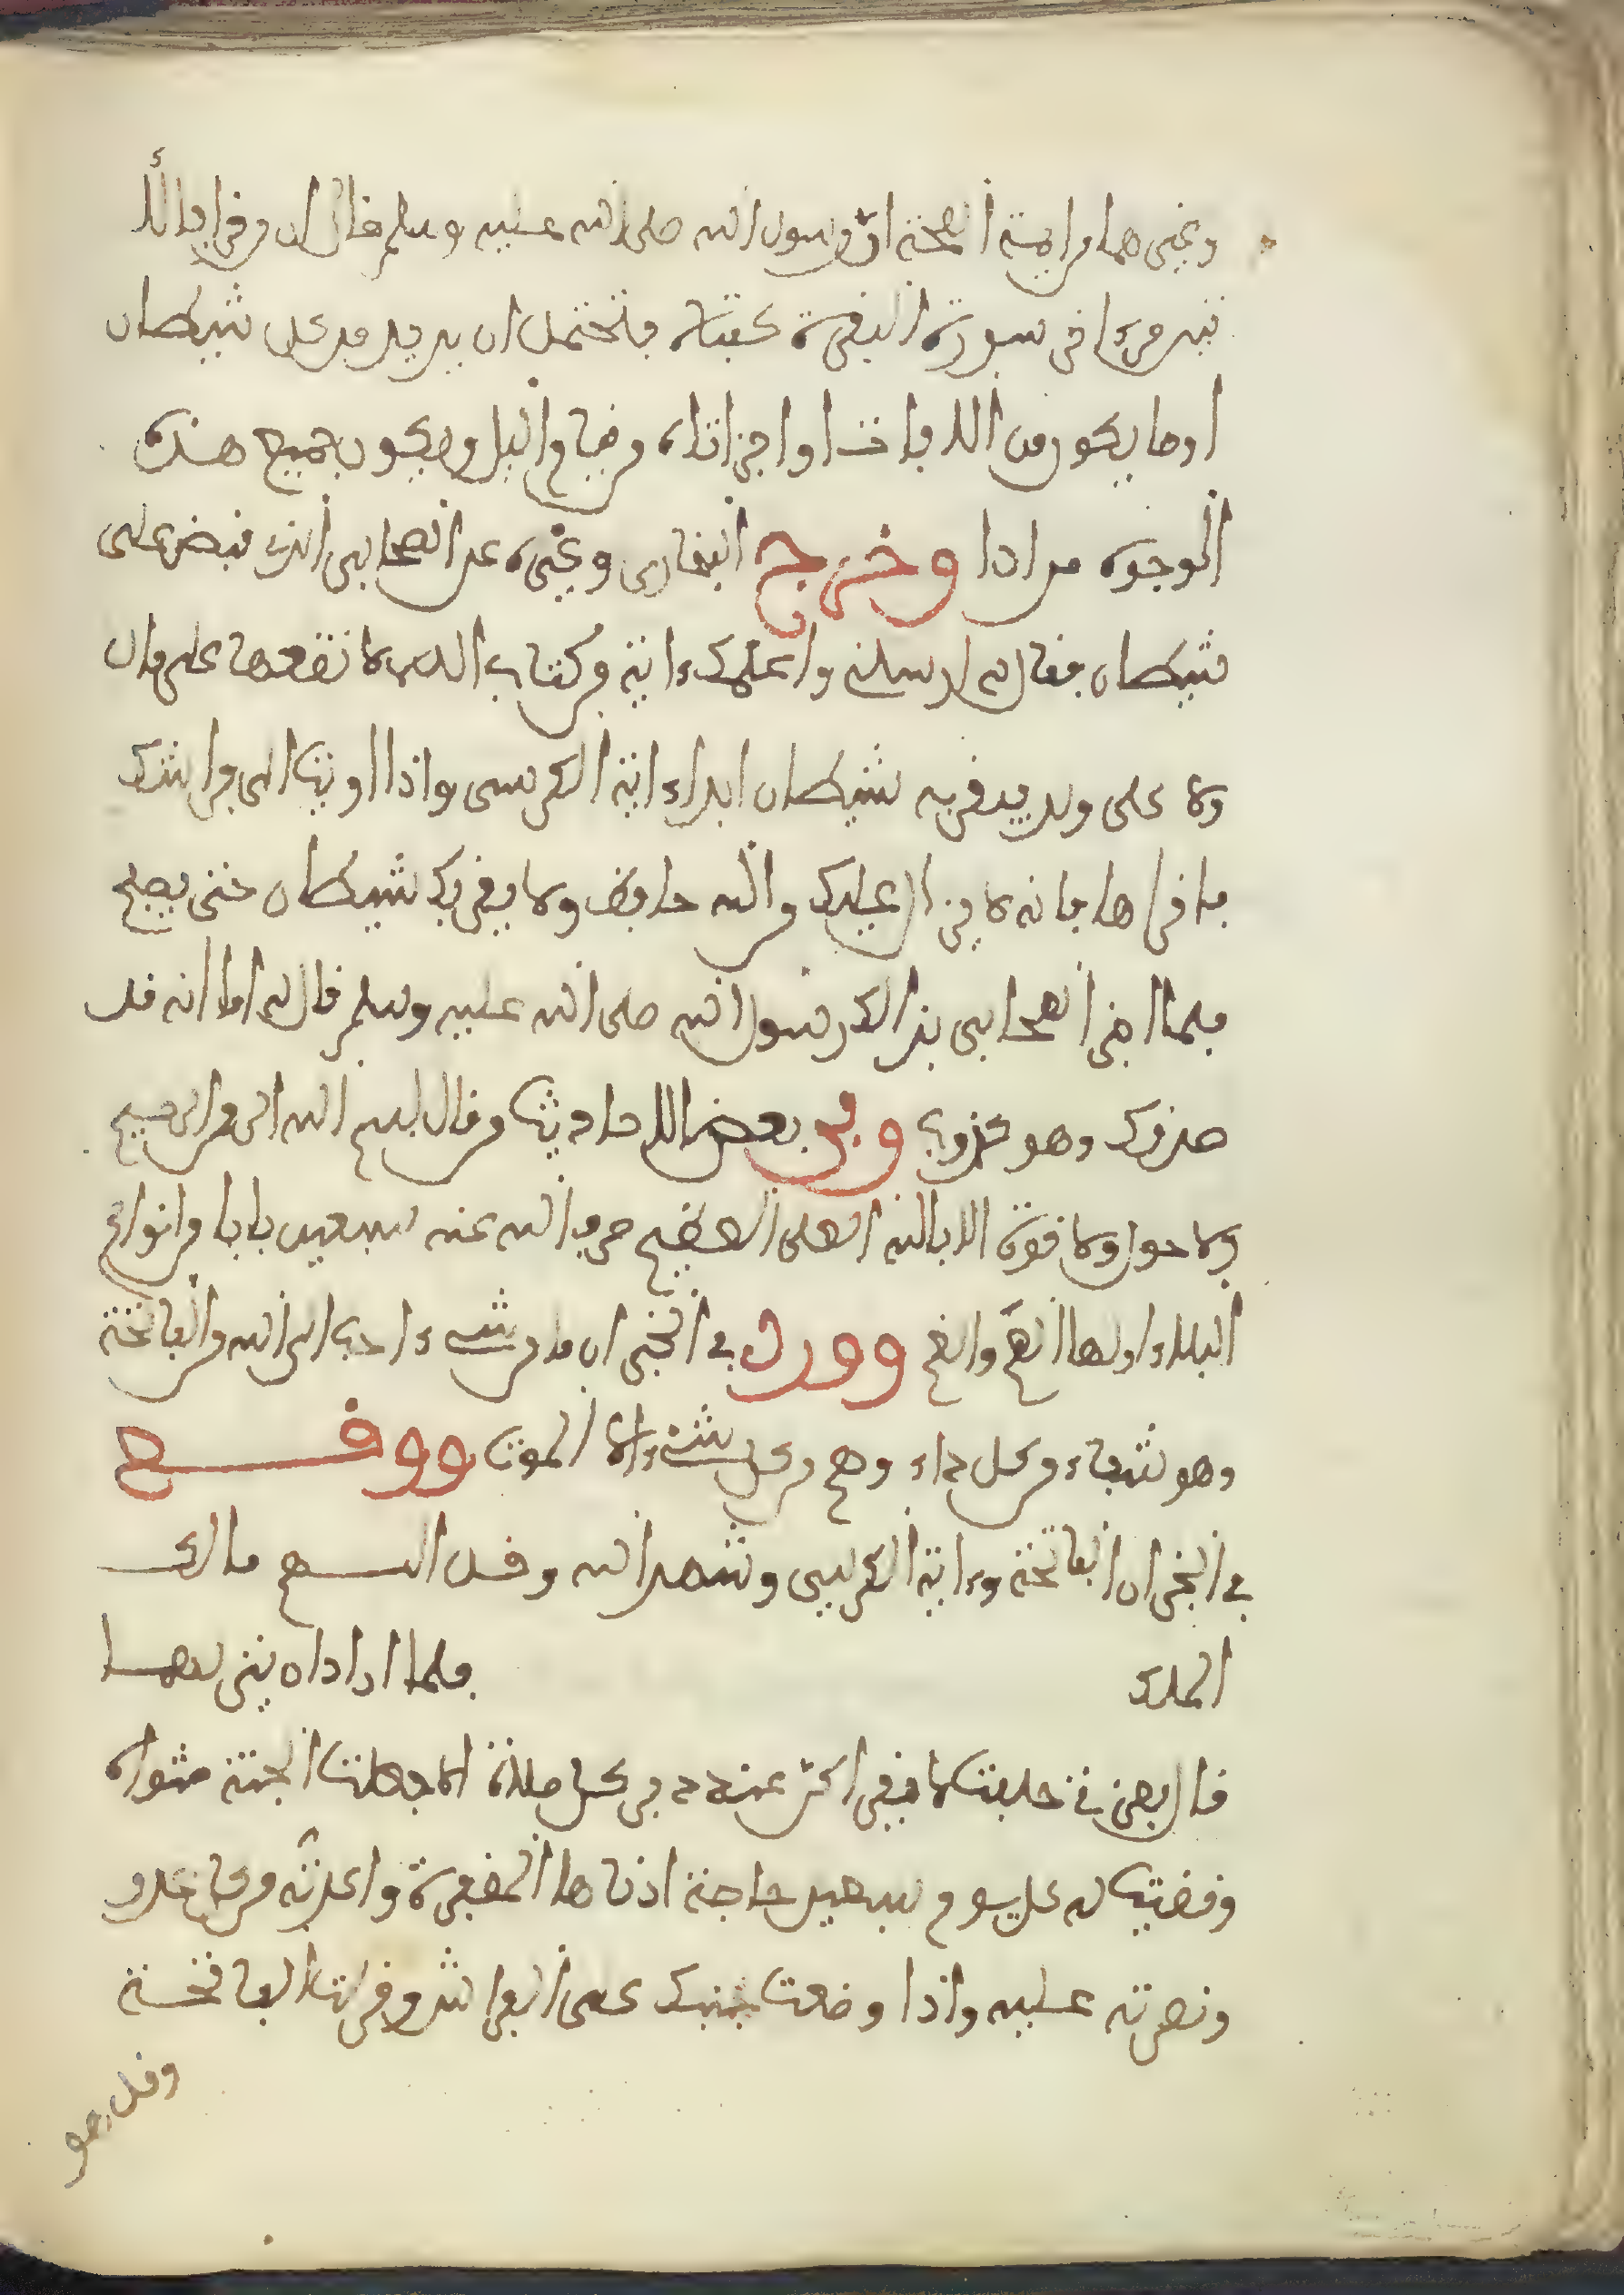 وغيرهما من ايمة الصحة ان رسول الله صلى الله عليه وسلم قال من قرأ بالا
يتين من ءاخر سورة البقرة كفتاه فيحتمل ان يريد من كل شيطان
او ما يكون من الافات او اجزاتاه من قيام اليل ويكون جميع هذه
الوجوه مرادا وخرج البخارى وغيره عن الصحابي الذي قبض على
شيطان فقال له ارسلني واعلمك ءاية من كتاب الله لا تضعها على مال
ولا على ولد فيقربه شيطان ابدا ءاية الكرسي واذا اويت الى فراشك
فاقراها فانه لا يزال عليك من الله حافظ ولا يقربك شيطان حتى يصبح
فلما اخبر الصحابي بذالك رسول الله صلى الله عليه وسلم قال له اما انه قد
صدقك وهو كذوب وفي بعض الاحاديث من قال بسم الله الرحمن الرحيم
ولا حول ولا قوة الا بالله العلي العظيم صرف الله عنه سبعين بابا من انواع
البلاء اولها الهم والغم وورد في الخبر ان ما من شيء احب الى الله من الفاتحة
وهو شفاء من كل داء وهم من كل شيء الا الموت ووقع
في الخبر ان الفاتحة وءاية الكرسي وشهد الله وقل اللهم مالك
الملك فلما اراد ان ينزلهما
قال بعزتي حلفت لا يقرا كن عبد دبر كل صلاة الا جعلت الجنة مثواه
وقضيت له كل يوم سبعين حاجة ادناها المغفرة واعذته من كل عدو
ونصرته عليه واذا وضعت جنبك على الفراش وقرات الفاتحة
وقل هو